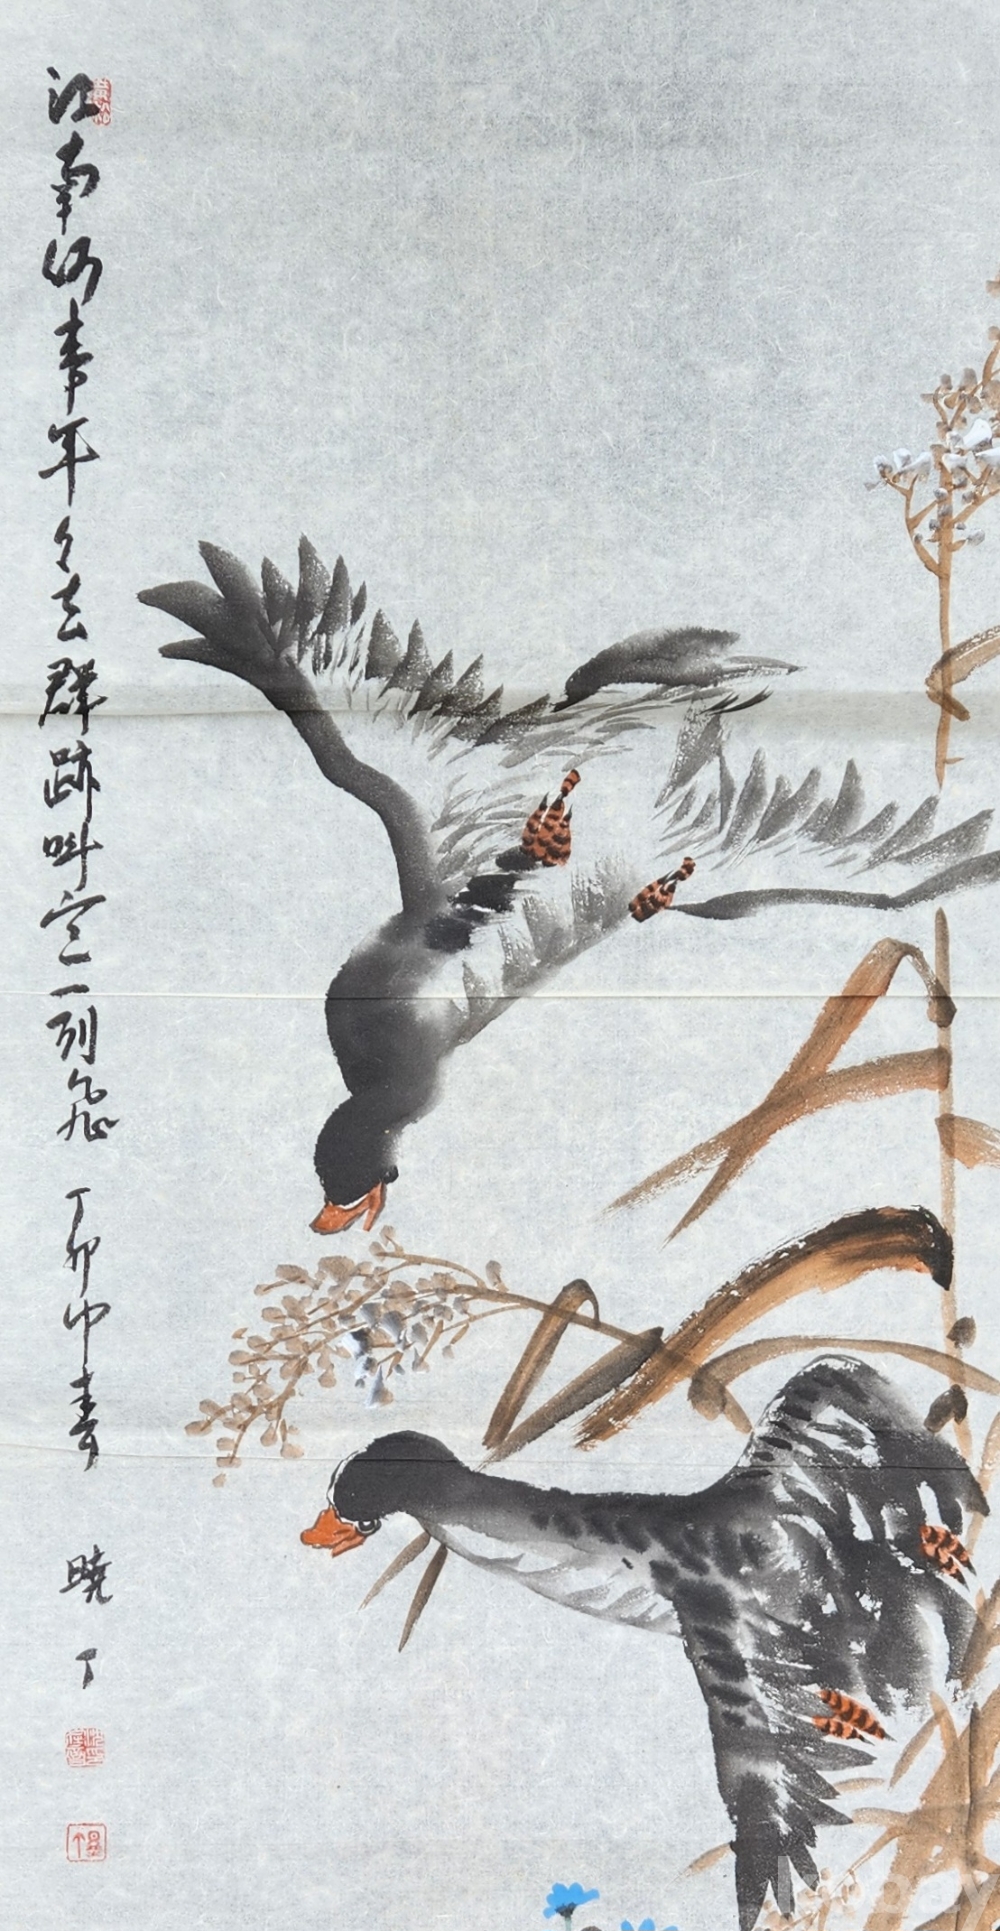 江南何事年々去群跡叫空一列飛 丁卯中春 曉丁